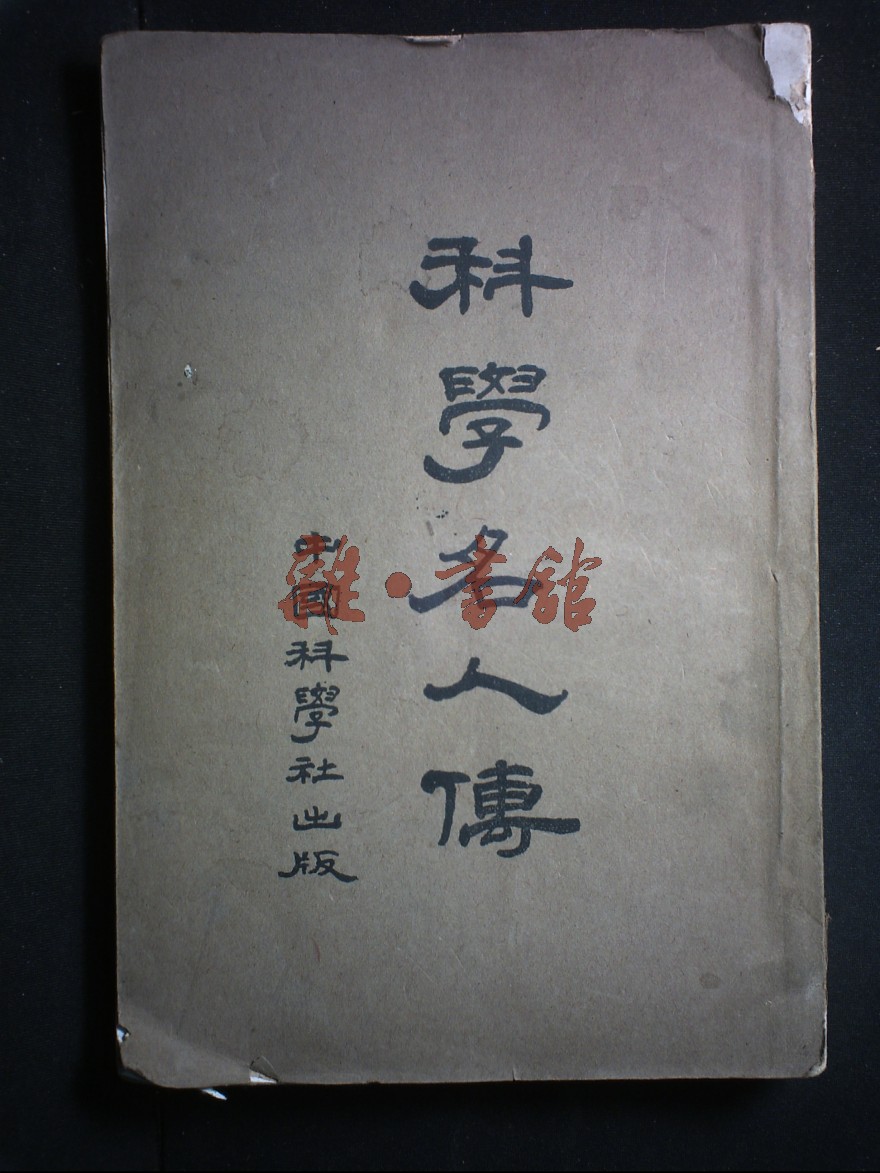 科學名人傳
中國科學社出版
雜·書館